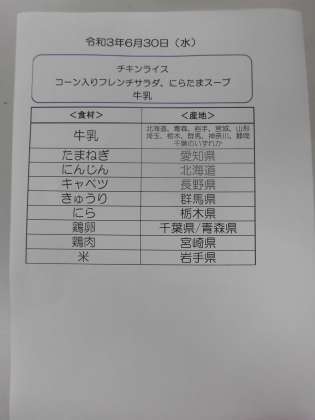 令和3年6月30日（水）
チキンライス
コーン入りフレンチサラダ、にらたまスープ
牛乳
＜食材＞ ＜産地＞
牛乳 北海道、青森、岩手、宮城、山形
埼玉、栃木、群馬、神奈川、静岡
千葉のいずれか
たまねぎ 愛知県
にんじん 北海道
キャベツ 長野県
きゅうり 群馬県
にら 栃木県
鶏卵 千葉県/青森県
鶏肉 宮崎県
米 岩手県